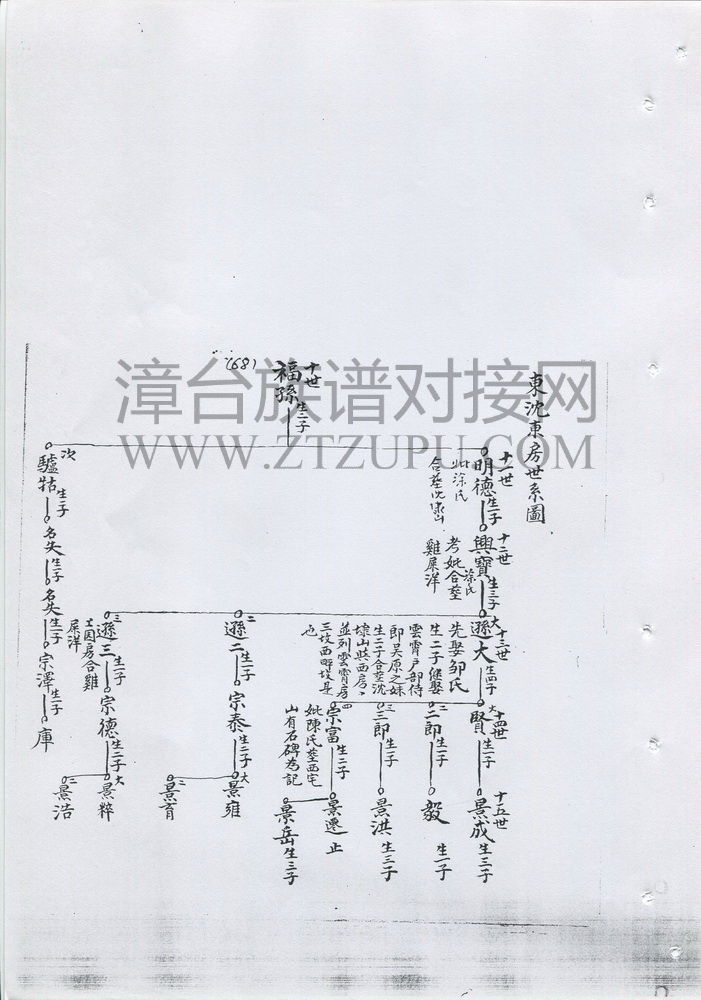 東沈東房世系圖
(68)
十世
福孫
生二子
漳台族谱对接网
WWW.ZTZUPU.COM
十一世
明德
生一子
妣涂氏
十二世
興寶
生三子
涂氏
考妣合塟
雞屎洋
十三世
大
遜大
生四子
先娶邹氏
生二子继娶
雲霄户部侍
即吴原之妹
生二子合塟沈
並列雲霄房
也
十四世
大
賢
生一子
十五世
景成
生三子
二
二郎
生一子
毅
生一子
三
三郎
生一子
景洪
生三子
四
宗富
生二子
妣陳氏塟西宅
山有石碑為記
景遷
止
景岳
生三子
二
遜二
生一子
宗泰
生二子
大
景雍
二
景育
三
遜三
生一子
屎洋
宗德
生二子
大
景粹
二
景浩
次
驢牯
生一子
名失
生一子
名失
生一子
宗澤
生一子
庫